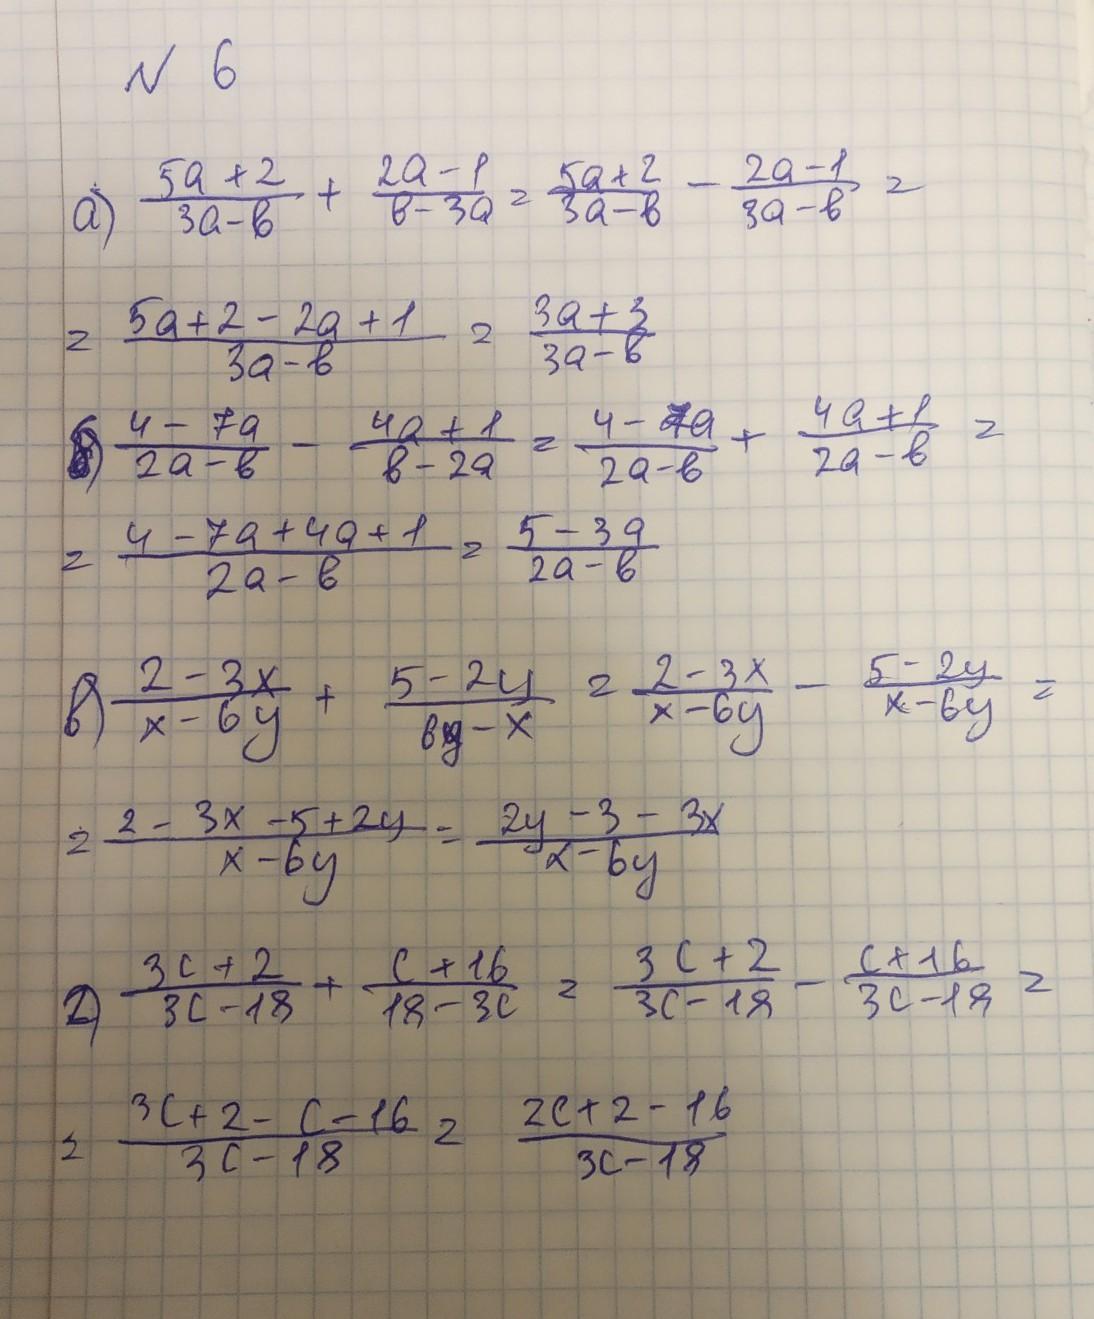 N 6
а) (5a+2)/(3a-b) + (2a-1)/(b-3a) = (5a+2)/(3a-b) - (2a-1)/(3a-b) =
= (5a+2-2a+1)/(3a-b) = (3a+3)/(3a-b)
б) (4-7a)/(2a-b) - (4a+1)/(b-2a) = (4-7a)/(2a-b) + (4a+1)/(2a-b) =
= (4-7a+4a+1)/(2a-b) = (5-3a)/(2a-b)
в) (2-3x)/(x-6y) + (5-2y)/(6y-x) = (2-3x)/(x-6y) - (5-2y)/(x-6y) =
= (2-3x-5+2y)/(x-6y) = (2y-3-3x)/(x-6y)
г) (3c+2)/(3c-18) + (c+16)/(18-3c) = (3c+2)/(3c-18) - (c+16)/(3c-18) =
= (3c+2-c-16)/(3c-18) = (2c+2-16)/(3c-18)